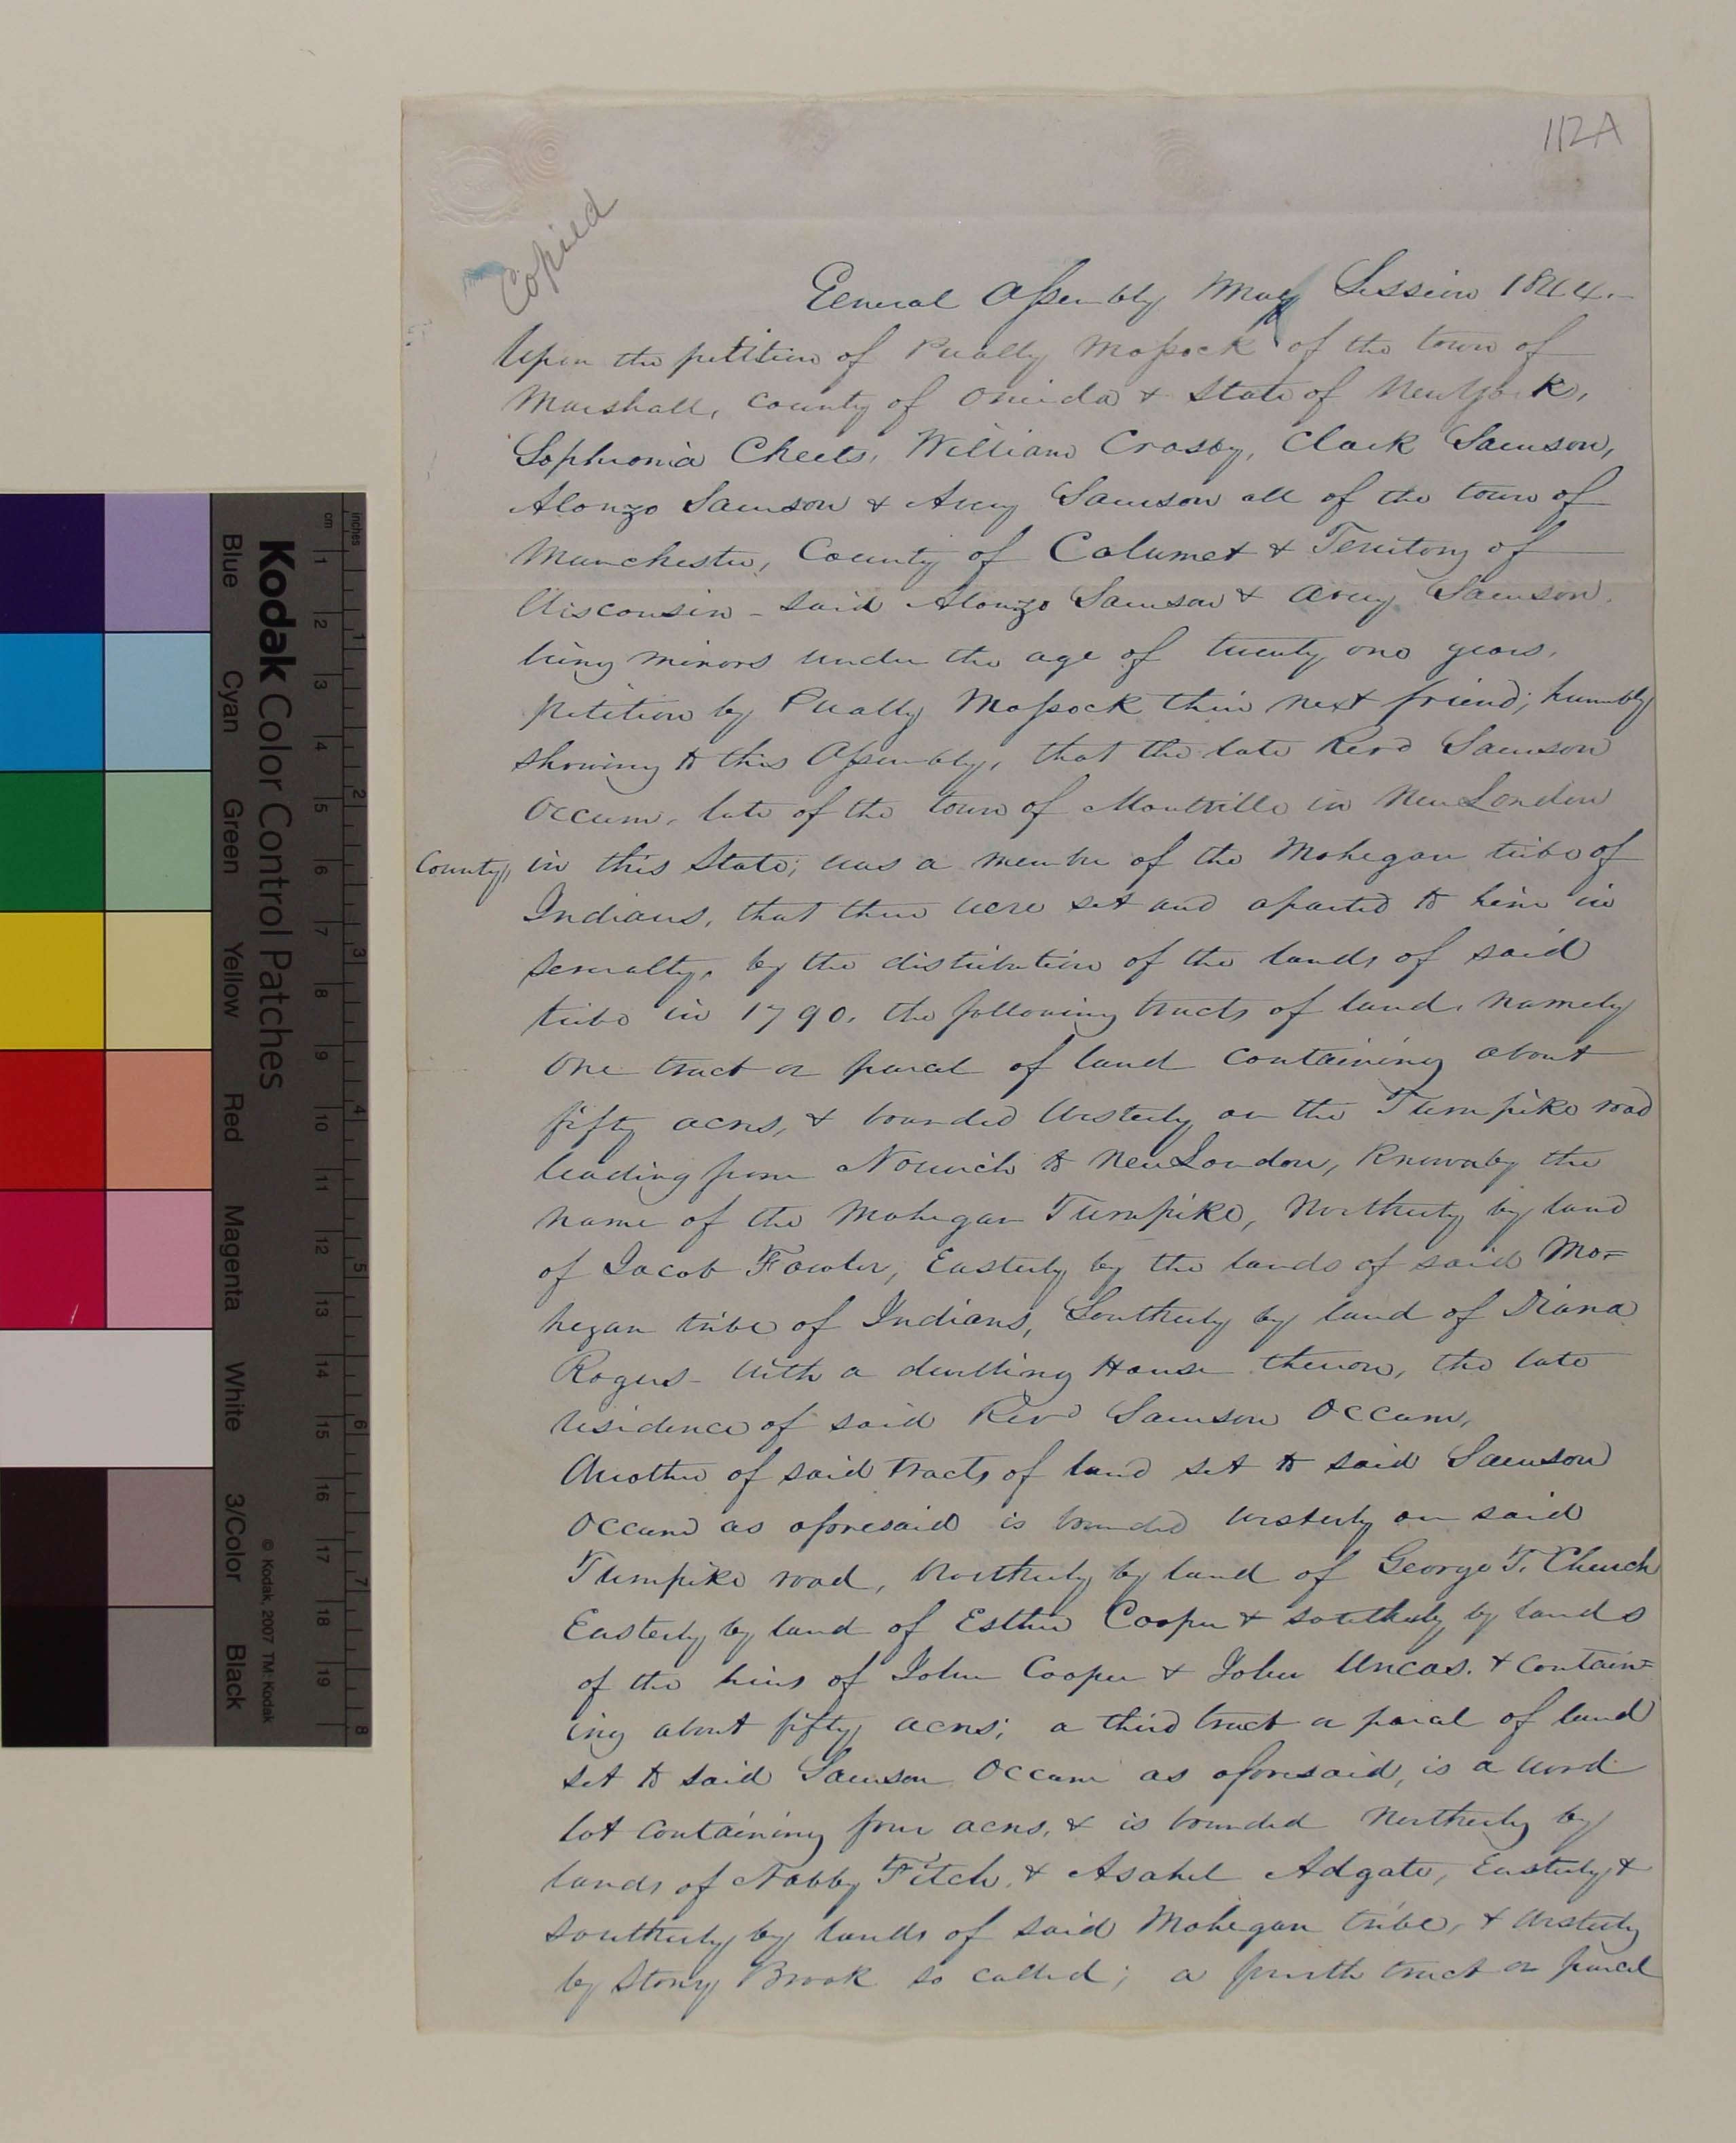 112A
Copied
General Assembly May Session 1844.
Upon the petition of Pually Mossock of the town of
Marshall, County of Oneida & State of New York,
Sophronia Cheets, William Crosby, Clark Samson,
Alonzo Samson & Avery Samson all of the town of
Manchester, County of Calumet & Territory of
Wisconsin - said Alonzo Samson & Avery Samson
being minors under the age of twenty one years,
petition by Pually Mossock their next friend; humbly
showing to this Assembly, that the late Revd Samson
Occum, late of the town of Montville in New London
County, in this State; was a member of the Mohegan tribe of
Indians, that there were set and aparted to him in
severalty, by the distribution of the lands of said
tribe in 1790, the following tracts of land, namely
One tract or parcel of land containing about
fifty acres, & bounded Westerly on the Turnpike road
leading from Norwich to New London, known by the
name of the Mohegan Turnpike, Northerly by land
of Jacob Fowler, Easterly by the lands of said Mo=
hegan tribe of Indians, Southerly by land of Diana
Rogers - with a dwelling House thereon, the late
residence of said Revd Samson Occum,
Another of said tracts of land set to said Samson
Occum as aforesaid is bounded westerly on said
Turnpike road, Northerly by land of George T. Church
Easterly by land of Esther Cooper & southerly by lands
of the heirs of John Cooper & John Uncas. & contain=
ing about fifty acres; a third tract or parcel of land
set to said Samson Occum as aforesaid, is a wood
lot containing four acres, & is bounded Northerly by
lands of Nabby Fitch, & Asahel Adgate, Easterly &
southerly by lands of said Mohegan tribe, & westerly
by Stony Brook so called; a fourth tract or parcel
inches
cm
1 2 3 4 5 6 7 8 9 10 11 12 13 14 15 16 17 18 19
1 2 3 4 5 6 7 8
Kodak Color Control Patches
© Kodak, 2007 TM: Kodak
Blue Cyan Green Yellow Red Magenta White 3/Color Black